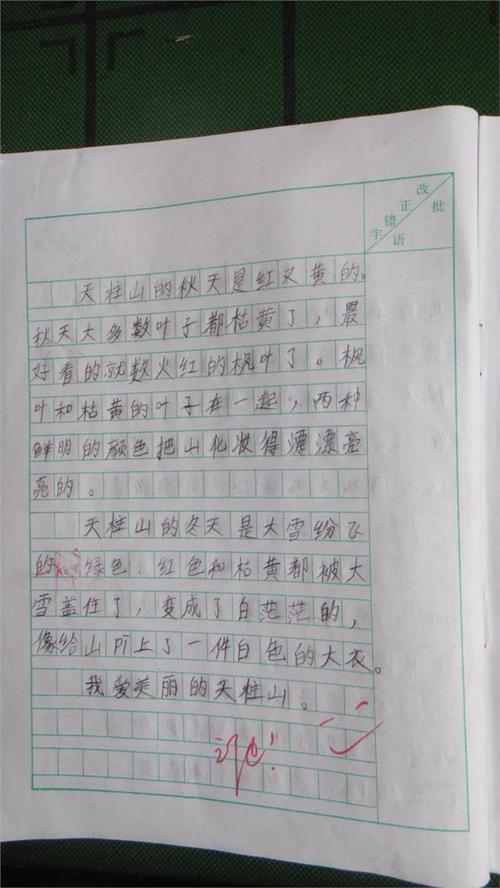 改正批
错语
字
天柱山的秋天是红又黄的。
秋天大多数叶子都枯黄了，最
好看的就数火红的枫叶了。枫
叶和枯黄的叶子在一起，两种
鲜明的颜色把山化妆得漂漂亮
亮的。
天柱山的冬天是大雪纷飞
的。绿色、红色和枯黄都被大
雪盖住了，变成了白茫茫的，
像给山pī上了一件白色的大衣。
我爱美丽的天柱山。